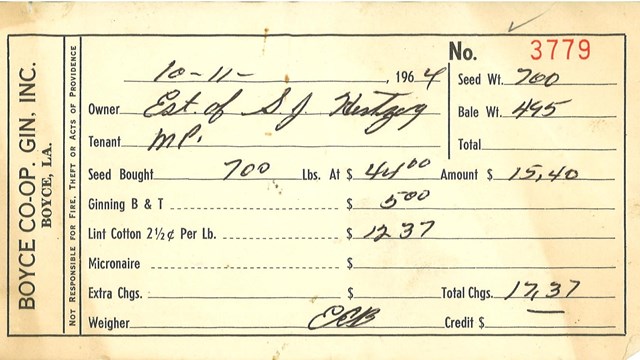 BOYCE CO-OP. GIN, INC.
BOYCE, LA.
NOT RESPONSIBLE FOR FIRE, THEFT OR ACTS OF PROVIDENCE
No. 3779
10-11-, 1964
Seed Wt. 700
Owner Est. of S J Hertzog
Bale Wt. 495
Tenant M P.
Total
Seed Bought 700 Lbs. At $ 44 00 Amount $ 15,40
Ginning B & T $ 5 00
Lint Cotton 2½¢ Per Lb. $ 12 37
Micronaire $
Extra Chgs. $ Total Chgs. 17,37
Weigher ECB Credit $